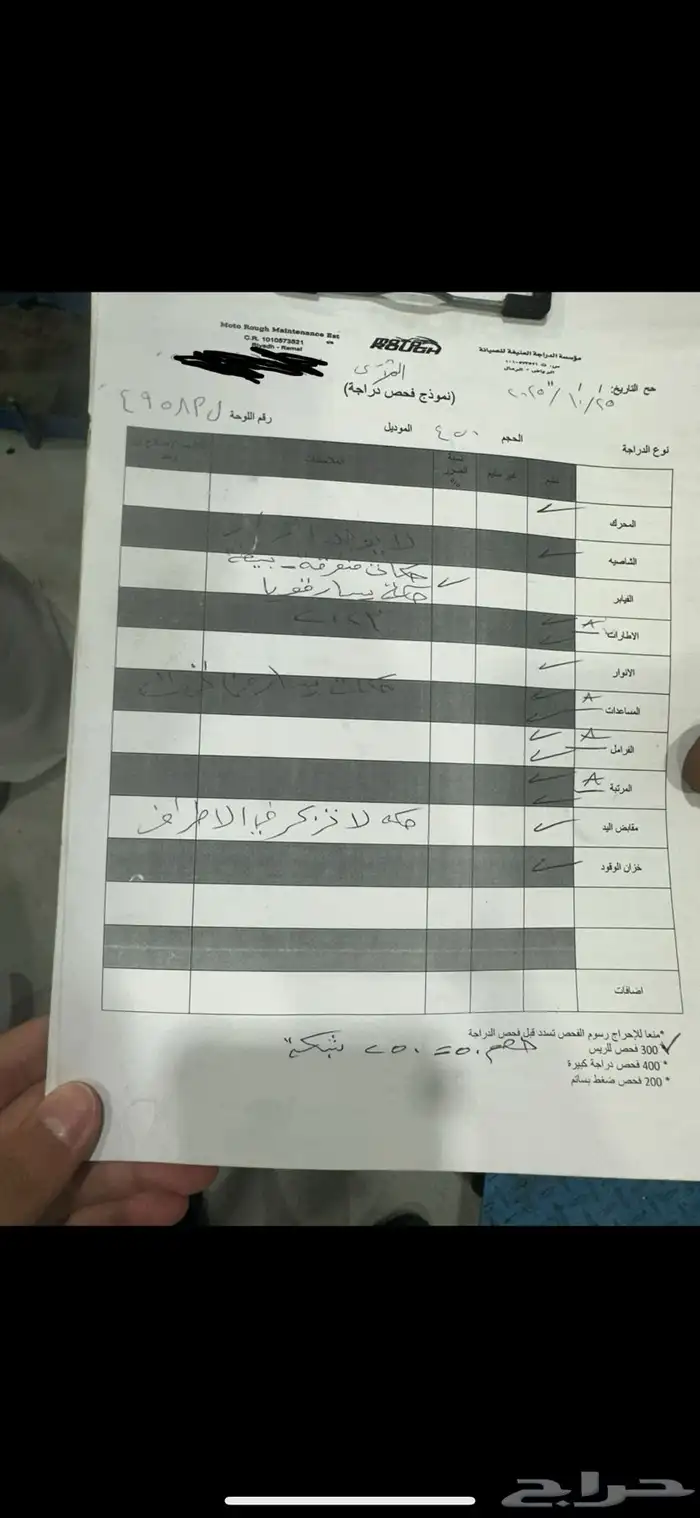 Moto Rough Maintenance Est
C.R. 1010573521
Riyadh - Remal
ROUGH
مؤسسة الدراجة العنيفة للصيانة
الرياض - الرمال
(نموذج فحص دراجة)
التاريخ: ٢٠٢٥/١٠/٢٥
رقم اللوحة
نوع الدراجة
الحجم ٤٥٠
الموديل
سليم
غير سليم
نسبة الضرر %
الملاحظات
المحرك
الشاصيه
لا يوجد
الفيابر
حكات متفرقة - بسيطة
حكة يسار
الاطارات A
الانوار
المساعدات A
الفرامل A
المرتبة A
مقابض اليد
حكه لا تذكر في الاطراف
خزان الوقود
اضافات
*منعا للإحراج رسوم الفحص تسدد قبل فحص الدراجة
* 300 فحص للريس
خصم ٥٠ = ٢٥٠ شبكة
* 400 فحص دراجة كبيرة
* 200 فحص ضغط بساتم
حراج